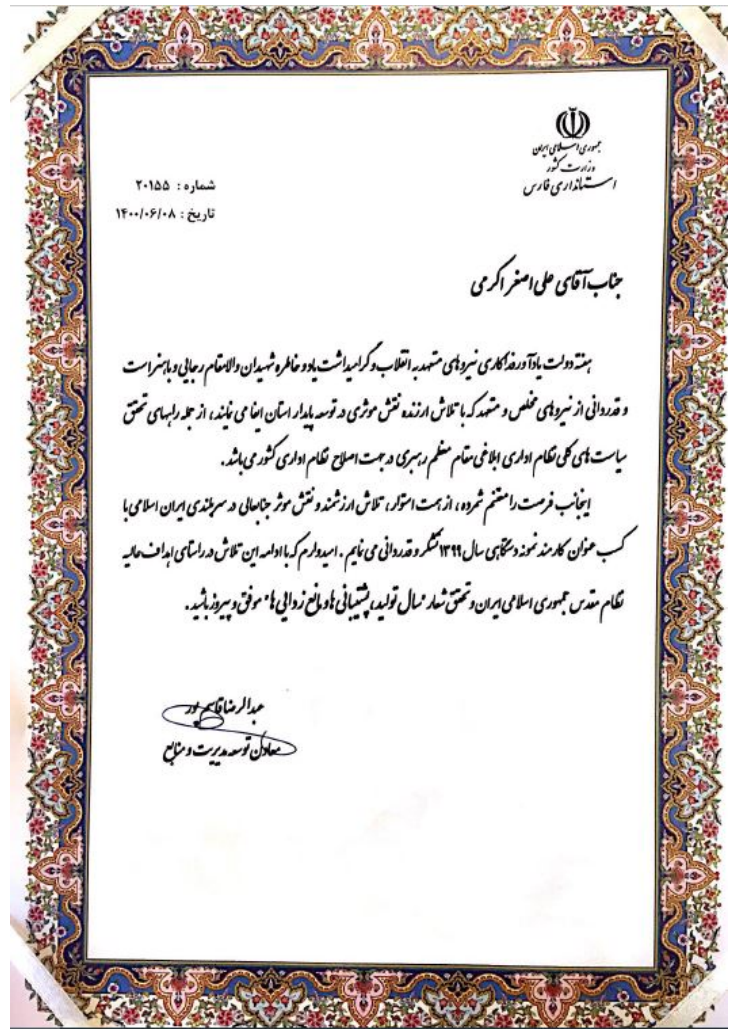 جمهوری اسلامی ایران
وزارت کشور
استانداری فارس
شماره : ۲۰۱۵۵
تاریخ : ۱۴۰۰/۰۶/۰۸
جناب آقای علی اصغر اکرمی
هفته دولت یادآور فداکاری نیروهای متعهد به انقلاب و گرامیداشت یاد و خاطره شهیدان والامقام رجایی و باهنر است
و قدردانی از نیروهای مخلص و متعهد که با تلاش ارزنده نقش موثری در توسعه پایدار استان ایفا می نمایند ، از جمله راههای تحقق
سیاست های کلی نظام اداری ابلاغی مقام معظم رهبری در جهت اصلاح نظام اداری کشور می باشد .
اینجانب فرصت را مغتنم شمرده ، از همت استوار ، تلاش ارزشمند و نقش موثر جنابعالی در سربلندی ایران اسلامی با
کسب عنوان کارمند نمونه دستگاهی سال ۱۳۹۹ تشکر و قدردانی می نمایم . امیدوارم که با ادامه این تلاش در راستای اهداف عالیه
نظام مقدس جمهوری اسلامی ایران و تحقق شعار "سال تولید، پشتیبانی ها و مانع زدایی ها" موفق و پیروز باشید .
عبدالرضا قاسم پور
معاون توسعه مدیریت و منابع